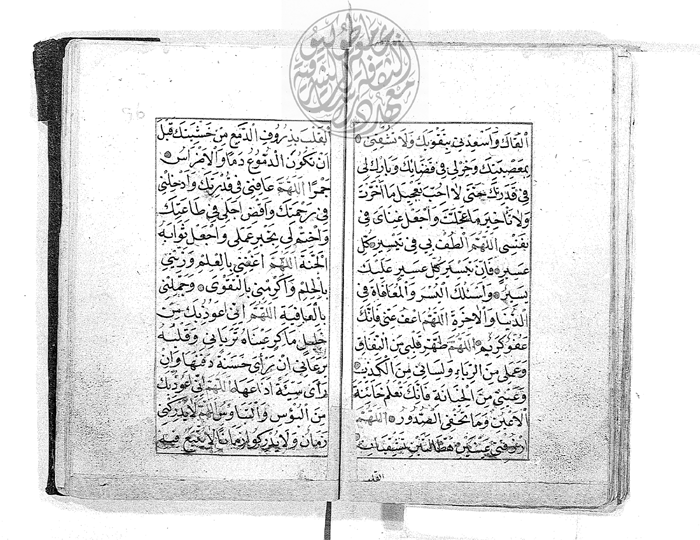 القاك واسعدني بتقويك ولا تشقني
بمعصيتك وخر لي في قضائك وبارك لي
في قدرتك حتى لا احب تعجيل ما اخرت
ولا تأخير ما عجلت واجعل غناي في
نفسي اللهم الطف بي في تيسير كل
عسير فان تيسير كل عسير عليك
يسير واسئلك اليسر والمعافاة في
الدنيا والآخرة اللهم اعف عني فانك
عفو كريم اللهم طهر قلبي من النفاق
وعملي من الرياء ولساني من الكذب
وعيني من الخيانة فانك تعلم خائنة
الاعين وما تخفي الصدور اللهم
ارزقني عينين هطالتين تسقيان
القلب
القلب بذروف الدمع من خشيتك قبل
ان تكون الدموع دما والاضراس
جمرا اللهم عافني في قدرتك وادخلني
في رحمتك واقض اجلي في طاعتك
واختم لي بخير عملي واجعل ثوابه
الجنة اللهم اغنني بالعلم وزيني
بالحلم واكرمني بالتقوى وجملني
بالعافية اللهم اني اعوذ بك من
خليل ماكر عيناه ترياني وقلبه
يرعاني ان رأى حسنة دفنها وان
رأى سيئة اذاعها اللهم اني اعوذ بك
من البؤس والتباؤس اللهم لا يدركني
زمان ولا يدركوا زمانا لا يتبع فيه